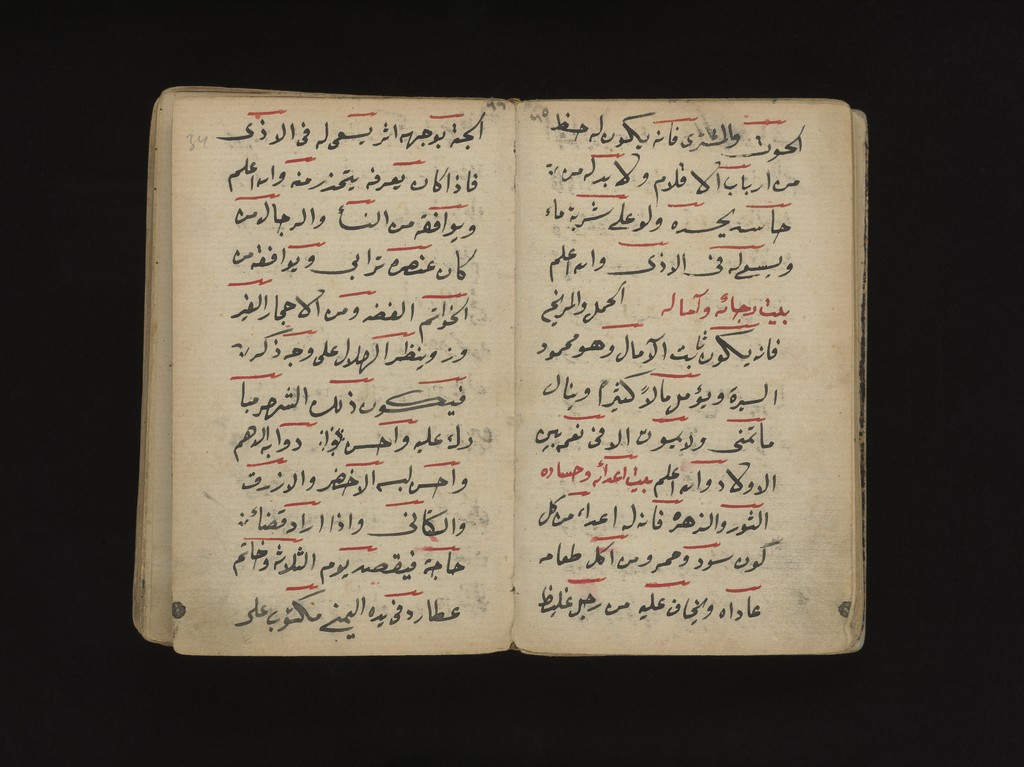 الحوت والمشترى فانه يكون له حظ
من ارباب الاقلام ولا بد له من
حاسد يحسده ولو على شربة ماء
ويسعى له فى الاذى والله اعلم
بيت رجائه وآماله الحمل والمريخ
فانه يكون ثابت الآمال وهو محمود
السيرة ويؤمل مالاً كثيرًا وينال
ما تمنى ولا يموت الا فى نعم بين
الاولاد والله اعلم بيت اعدائه وحساده
الثور والزهرة فان له اعداء من كل
كون سود وحمر ومن اكل طعامه
عاداه ويخاف عليه من رجل غليظ
الجثة بوجهه اثر يسعى له فى الاذى
فاذا كان يعرفه يتحذر منه والله اعلم
ويوافقه من النسأ والرجال من
كان عنصره ترابى ويوافقه من
الخواتم الفضه ومن الاحجار الفير
وز وينظر الهلال على وجه ذكر
فيكون ذلك الشهر مبا
رك عليه واحسن دوابه الدهم
واحسن لبسه الاخضر والازرق
والكتانى واذا اراد قضاء
حاجة فيقصد يوم الثلاثة وخاتم
عطارد فى يده اليمنى مكتوب على